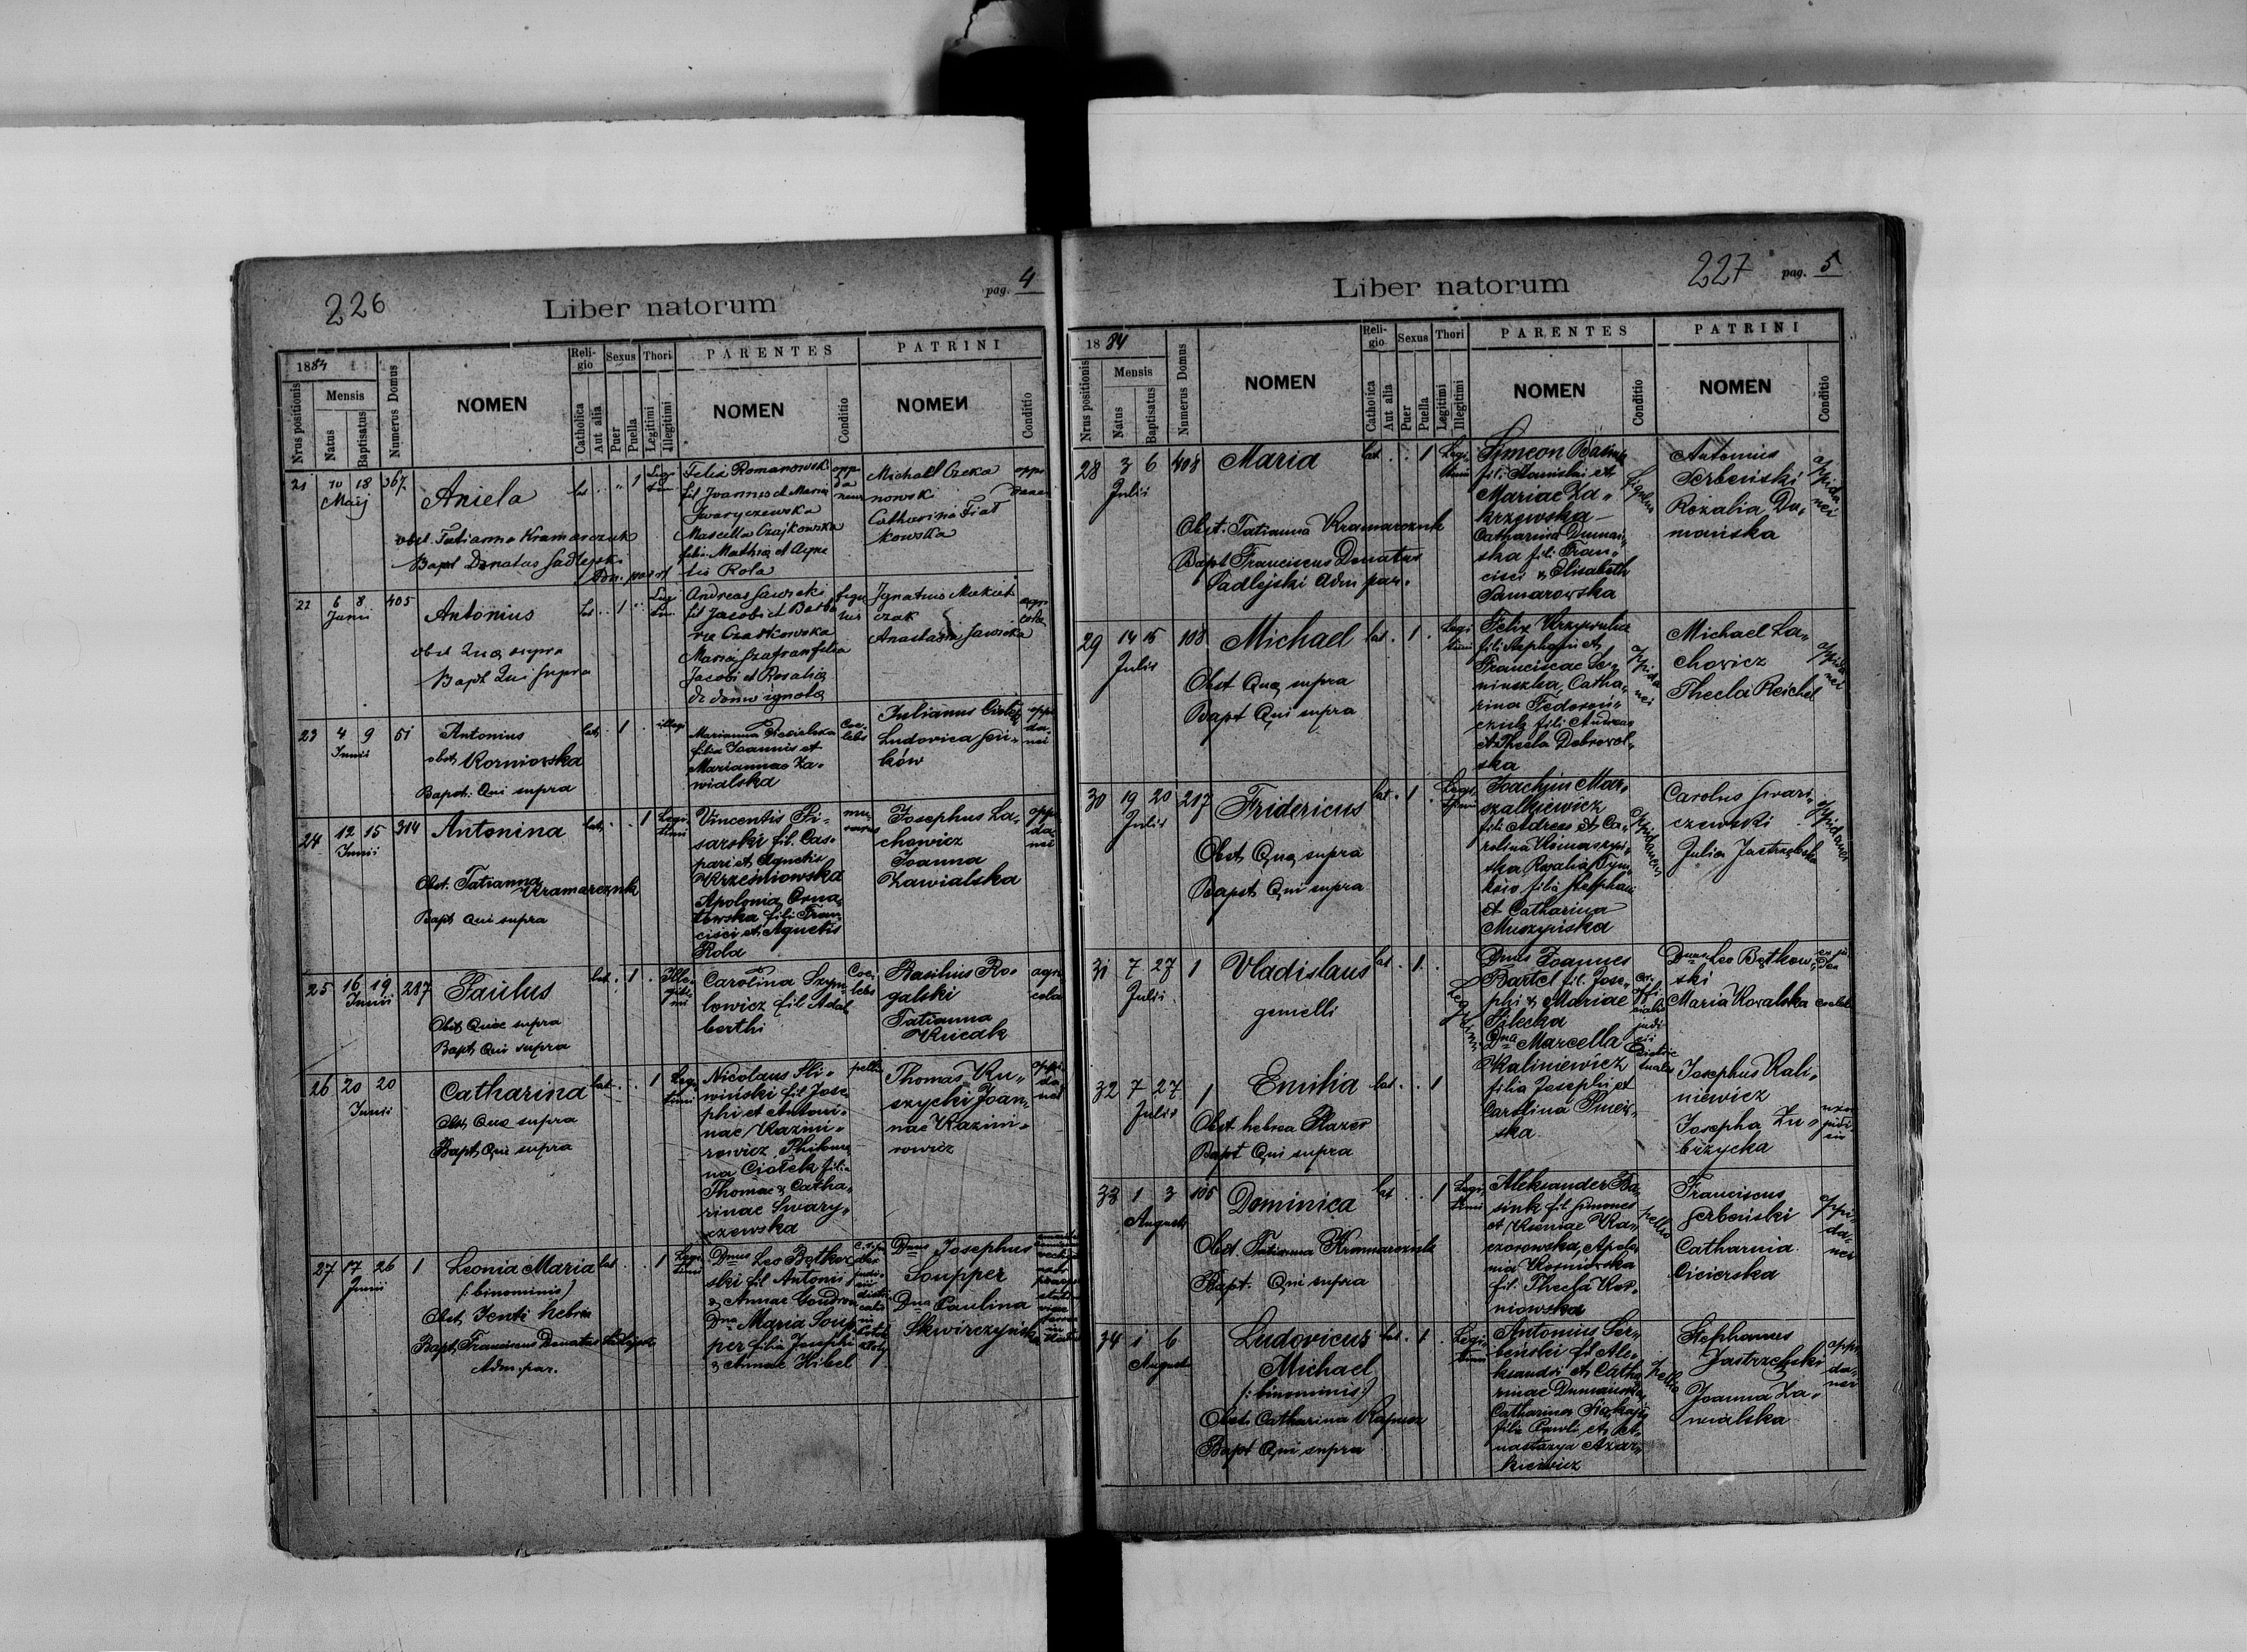 226
Liber natorum
pag. 4
1884
Mensis
Nrus positionis
Natus
Baptisatus
Numerus Domus
NOMEN
Religio
Catholica
Aut alia
Sexus
Puer
Puella
Thori
Legitimi
Illegitimi
PARENTES
NOMEN
Conditio
PATRINI
NOMEN
Conditio
21 10 18 367
Maij
Aniela
lat 1 Legitimi
obst. Tatianna Kramarczuk
Bapt Donatus Sadlejski
Felix Romanowski
fil Joannis et Maria
Swaryczewska
Marcella Czajkowska
filia Mathia et Agne
tis Rola
Michael Czeka
nowski
Catharina Fiał
kowska
22 6 8 405
Junii
Antonius
obst Qua supra
Bapt Qui supra
Andreas Sawicki
fil Jacobi et Barba
ra Czatkowska
Maria Szafran filia
Jacobi et Rosalia
de domo ignota
figu
lus
Ignatius Mikiet
czak
Anastasia Sawicka
agri
cola
23 4 9 51
Junii
Antonius
obst. Korniowska
Bapt. Qui supra
lat. 1 illegi
filia Joannis et
Mariannae Za-
wialska
Coe-
lebs
Julianus Ciołek
Ludovica
ków
oppi
da-
nei
24 12 15 314
Junii
Antonina
Obst. Tatianna
Kramarcznk
Bapt Qui supra
lat. 1 Legi
timi
Vincentis Pi-
sarski fil. Cas-
pari et Agnetis
Krześniowska
Apolonia Orna-
towska fili Fran-
cisci et Agnetis
Rola
mu-
rarius
Josephus La-
chowicz
Joanna
Zawialska
oppi
da-
nei
25 16 19 287
Junii
Paulus
Obst Quae supra
Bapt Qui supra
lat. 1 Ille-
giti-
mi
Carolina Szym-
lowicz fil Adal
berthi
Coe-
lebs
Basilius Ro-
galski
Tatianna
Kucak
agri
cola
26 20 20
Junii
Catharina
Obst Qua supra
Bapt Qui supra
lat. 1 Legi
timi
Nicolaus Sli-
wiński fil Jose-
phi et Antoni-
nae Kazmi-
rowicz, Philome
na Ciołek filia
Thomae & Catha-
rinae Swary-
czewska
pellio
Thomas Ku-
szycki Joan-
nae Kazmi-
rowicz
oppi
da
nei
27 17 26 1
Junii
Leonia Maria
(: binominis)
Obst Jenti hebrea
Bapt Franciscus Donatus Sadlejski
Adm. par.
lat. 1 Legi
timi
Dnus Leo Bętkow
ski fil Antonii
& Annae Gondrow
Dna Maria Soup
per filia Josephi
& Annae Hibel
Dnus Josephus
Soupper
Dna Paulina
Skwirczyńska
227
Liber natorum
pag. 5
1884
Mensis
Nrus positionis
Natus
Baptisatus
Numerus Domus
NOMEN
Religio
Catholica
Aut alia
Sexus
Puer
Puella
Thori
Legitimi
Illegitimi
PARENTES
NOMEN
Conditio
PATRINI
NOMEN
Conditio
28 3 6 408
Julii
Maria
Obst. Tatianna Kramarcznk
Bapt Franciscus Donatus
Sadlejski Adm par.
lat. 1 Legi
timi
Simeon Basink
fili Stanislai et
Mariae Za-
krzewska
Catharina Duman-
ska fili Fran-
cisci & Elisabeth
Samarowska
figulus
Antonius
Serbeński
Rozalia Du-
mańska
oppida
nei
29 14 15 108
Julii
Michael
Obst Qua supra
Bapt Qui supra
lat. 1 Legi
timi
Felix Krzywulia
fili Stephani et
Franciscae Ser-
niuszka, Catha-
rina Fedorow-
czuk fili Andreas
et Thecla Dobrowol-
ska
oppida
nei
Michael La-
chowicz
Thecla Reichel
oppida
nei
30 19 20 217
Julii
Fridericus
Obst Qua supra
Bapt Qui supra
lat. 1 Legi
timi
Joachim Mar-
szalkiewicz
fili Adreas et Ca-
rolina Komaszyń-
ska Rosalia Tym-
ków filia Stephani
et Catharina
Muszyńska
oppidaneus
Carolus Swari-
czewski
Julia Jastrzębska
oppidanei
31 7 27 1
Julii
Vladislaus
gemelli
lat. 1
Legitimi
Dnus Joannes
Bartel fil. Jose-
phi & Mariae
Pilecka
Dna Marcella
Kaliniewicz
filia Josephi et
Carolina
ska
Dnus Leo Bętkow-
ski
Maria Kowalska coelebs
32 7 27 1
Julii
Emilia
Obst hebrea Blazer
Bapt Qui supra
lat. 1
Josephus Kali-
niewicz
Josepha Zu-
brzycka
33 1 3 105
Augusti
Dominica
Obst Tatianna Kramarcznk
Bapt. Qui supra
lat 1 Legi
timi
Aleksander Ba-
sink fil Simones
et Kseniae Ka-
czorowska, Apolo
nia Korniowska
fil. Thecla Kor-
niowska
pellio
Franciscus
Serbeński
Catharina
Cicierska
oppi-
da-
nei
34 1 6
Augusti
Ludovicus
Michael
(: binominis)
Obst Catharina Kapusz
Bapt Qui supra
lat. 1 Legi
timi
Antonius Ser-
beński fil Ale-
ksandri et Catha
rinae Dumanska,
Catharina
filia Pawli et A-
nastazya Azar-
kiewicz
pellio
Stephannes
Jastrzebski
Joanna Za-
wialska
oppi
da-
nei